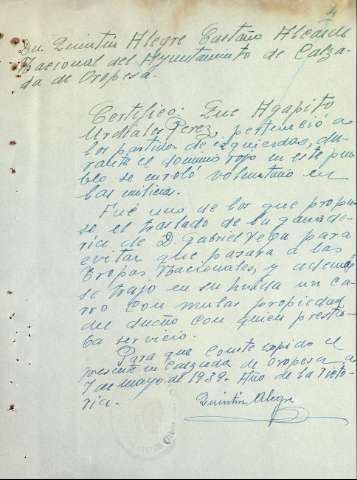 4
Dn. Quintin Alegre Castaño Alcalde
Nacional del Ayuntamiento de Calza-
da de Oropesa.
Certifico: Que Agapito
Morales Perez, perteneció a
los partidos de izquierdas, du-
rante el dominio rojo en este pue-
blo se enroló voluntario en
las milicias.
Fué uno de los que propu-
so, el traslado de la ganade-
ria de D. Gabriel Vega para
evitar que pasara a las
Tropas Nacionales, y además
se trajo en su huida un ca-
rro con mulas propiedad
del dueño con quien presta-
ba servicio.
Para que conste expido el
presente en Calzada de Oropesa a
7 de Mayo de 1939. Año de la Victo-
ria.
Quintin Alegre